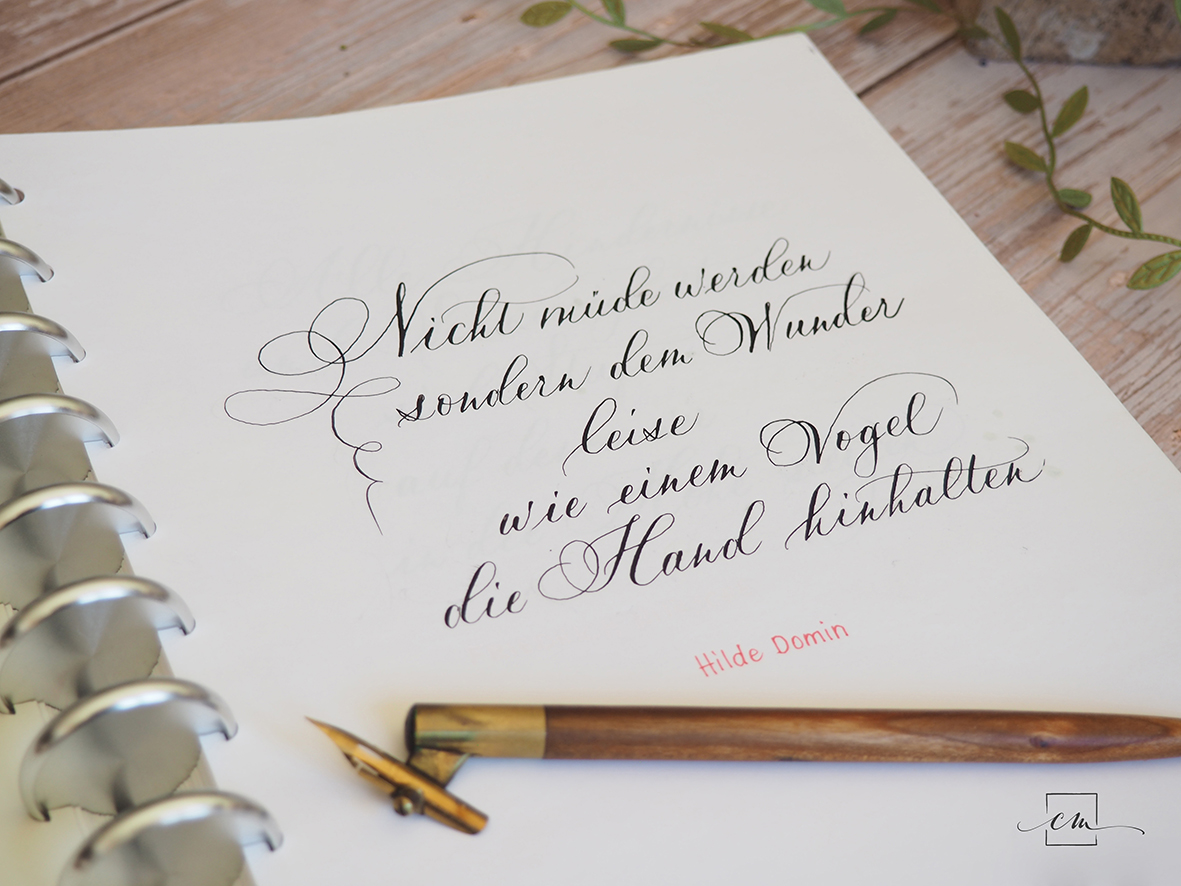 Nicht müde werden
sondern dem Wunder
leise
wie einem Vogel
die Hand hinhalten
Hilde Domin
cm